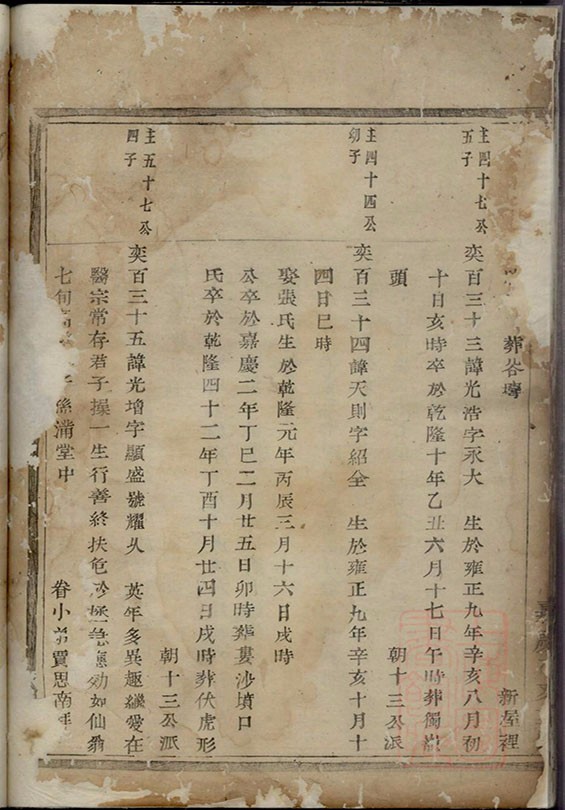 葬谷塆
新屋裡
主四十七公
五子
奕百三十三諱光浩字永大 生於雍正九年辛亥八月初
十日亥時卒於乾隆十年乙丑六月十七日午時葬獨樹
頭 朝十三公派
主四十四公
幼子
奕百三十四諱天則字紹全 生於雍正九年辛亥十月十
四日巳時
娶張氏生於乾隆元年丙辰三月十六日戌時
公卒於嘉慶二年丁巳二月廿五日卯時葬婁沙墳口
氏卒於乾隆四十二年丁酉十月廿四日戌時葬伏虎形
朝十三公派
主五十七公
四子
奕百三十五諱光增字顯盛號耀久 英年多異趣繼愛在
醫宗常存君子操一生行善終扶危 急 効如仙翁
七旬 滿堂中 眷小弟賈思南